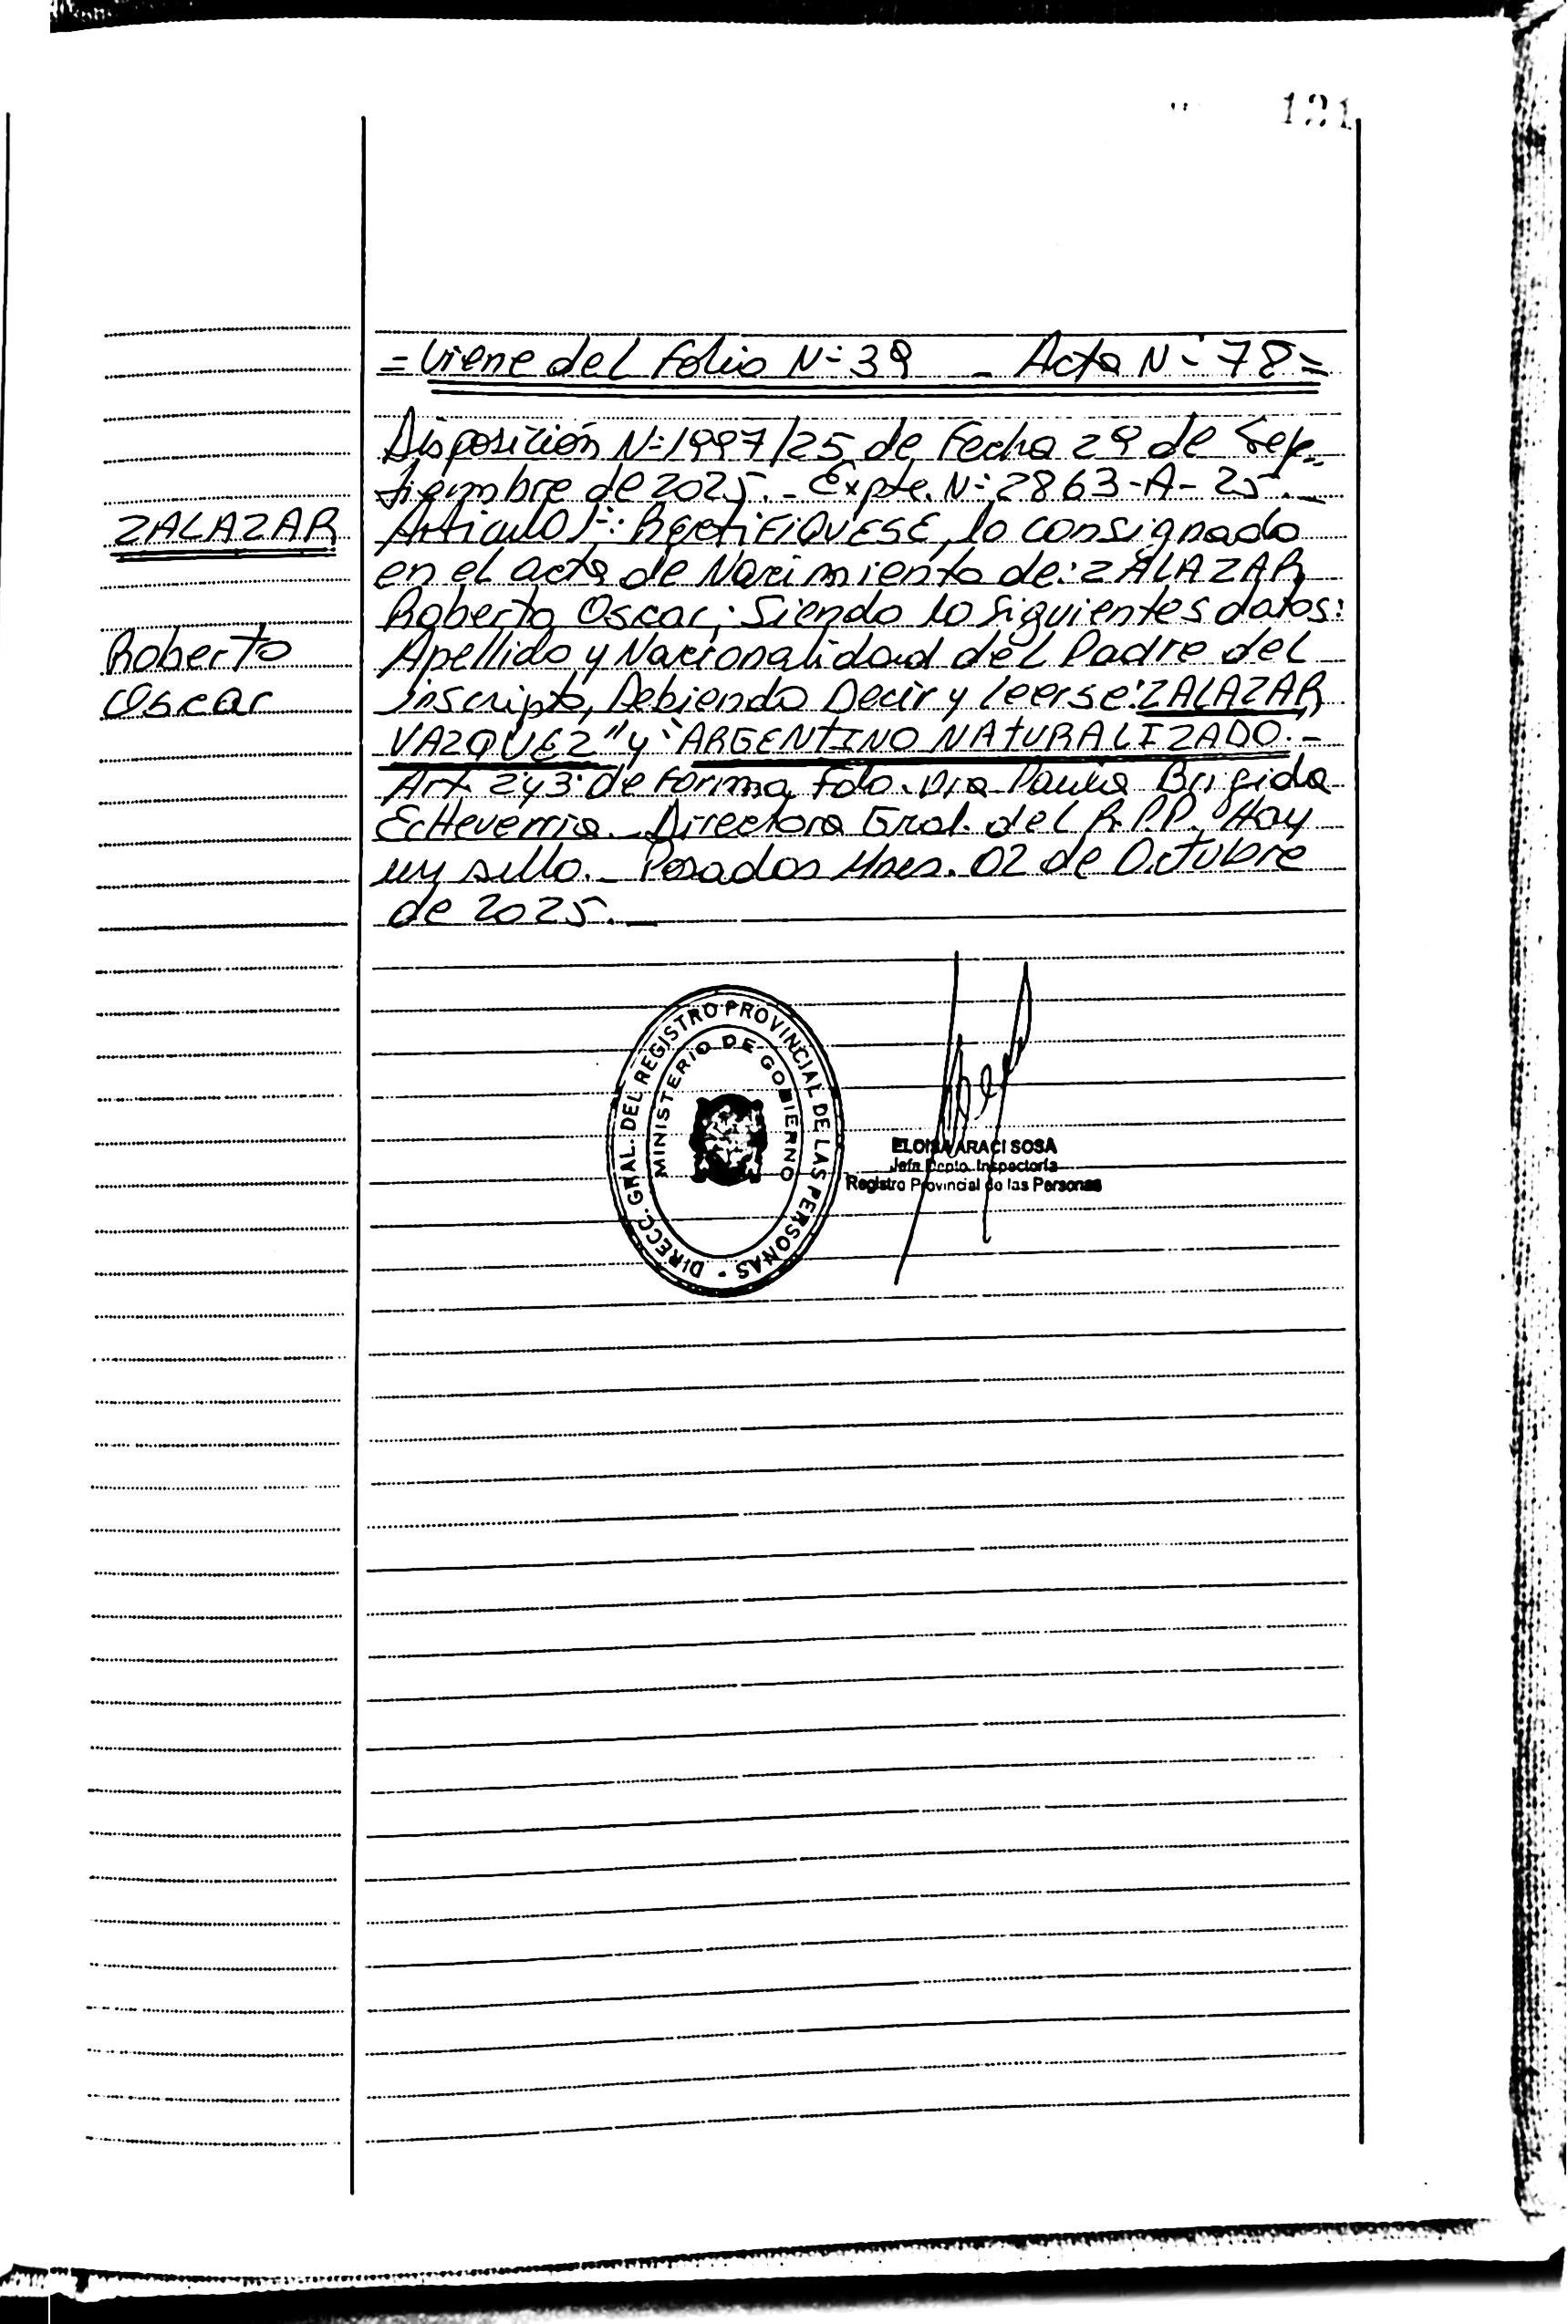 121
= Viene del Folio N: 39 _ Acta N: 78 =
Disposición N: 1997/25 de Fecha 29 de Sep-
tiembre de 2025. - Expte. N: 2863-A-25. _
ZALAZAR
Articulo 1-: RectiFIQUESE, lo consignado
en el acta de Nacimiento de: ZALAZAR
Roberto Oscar; Siendo lo Siguientes datos:
Roberto
Apellido y Nacionalidad del Padre del
Oscar
inscripto, Debiendo Decir y Leerse: ZALAZAR
VAZQUEZ" y "ARGENTINO NATURALIZADO. -
Art. 2y3 de Forma Fdo. Dra Paula Brigida
Echeverria. _ Directora Gral. del R.P.P. Hay
uy sello. _ Posadas Mnes. 02 de Octubre
de 2025. _
DIRECC. GRAL. DEL REGISTRO PROVINCIAL DE LAS PERSONAS -
MINISTERIO DE GOBIERNO
ELOISA ARACI SOSA
Jefa Dpto. Inspectoría
Registro Provincial de las Personas